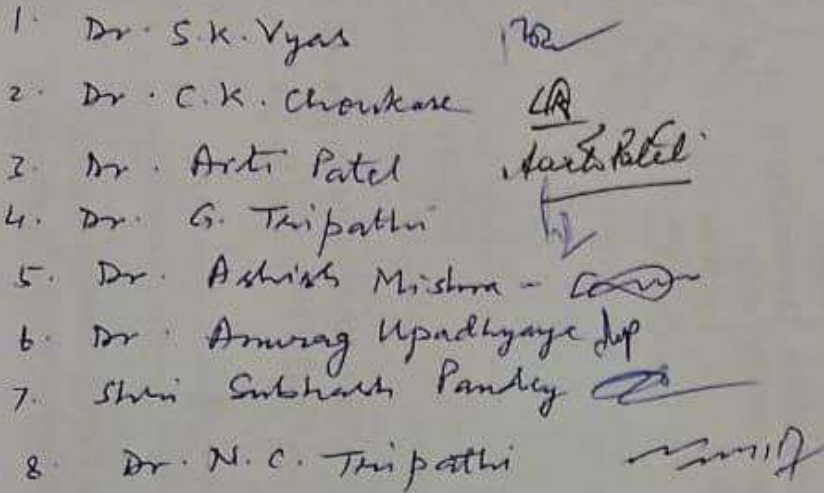 1. Dr. S.K. Vyas
2. Dr. C.K. Chowkase
3. Dr. Arti Patel Aarti Patel
4. Dr. G. Tripathi
5. Dr. Ashish Mishra -
6. Dr. Anurag Upadhyaye
7. Shri Subhash Pandey
8. Dr. N.C. Tripathi